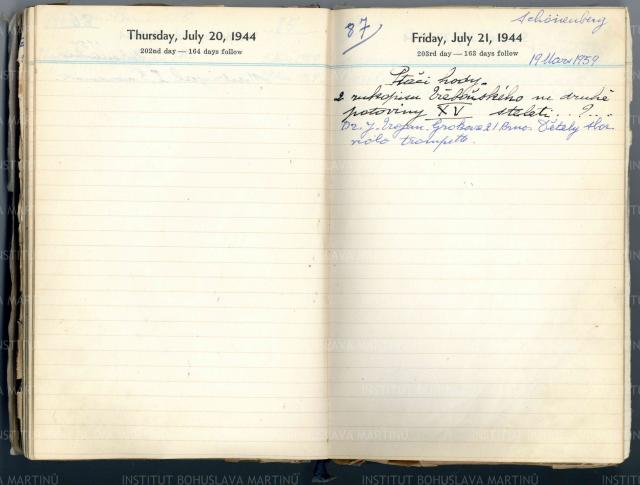 Thursday, July 20, 1944
202nd day — 164 days follow
87
Schönenberg
Friday, July 21, 1944
203rd day — 163 days follow
19 Mars 1959
Ptačí hody.
z rukopisu Třeboňského ne druhé
poloviny XV století. . ? . .
Dr. J. Trojan. Grohova 21 Brno.
viola trompette.
INSTITUT BOHUSLAVA MARTINŮ